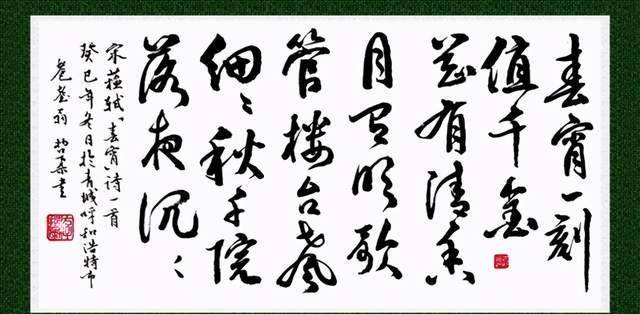 春宵一刻
值千金
花有清香
月有阴歌
管楼台声
细〻秋千院
落夜沉〻
宋苏轼「春宵」诗一首
癸巳年冬日於青城呼和浩特市
翁 书